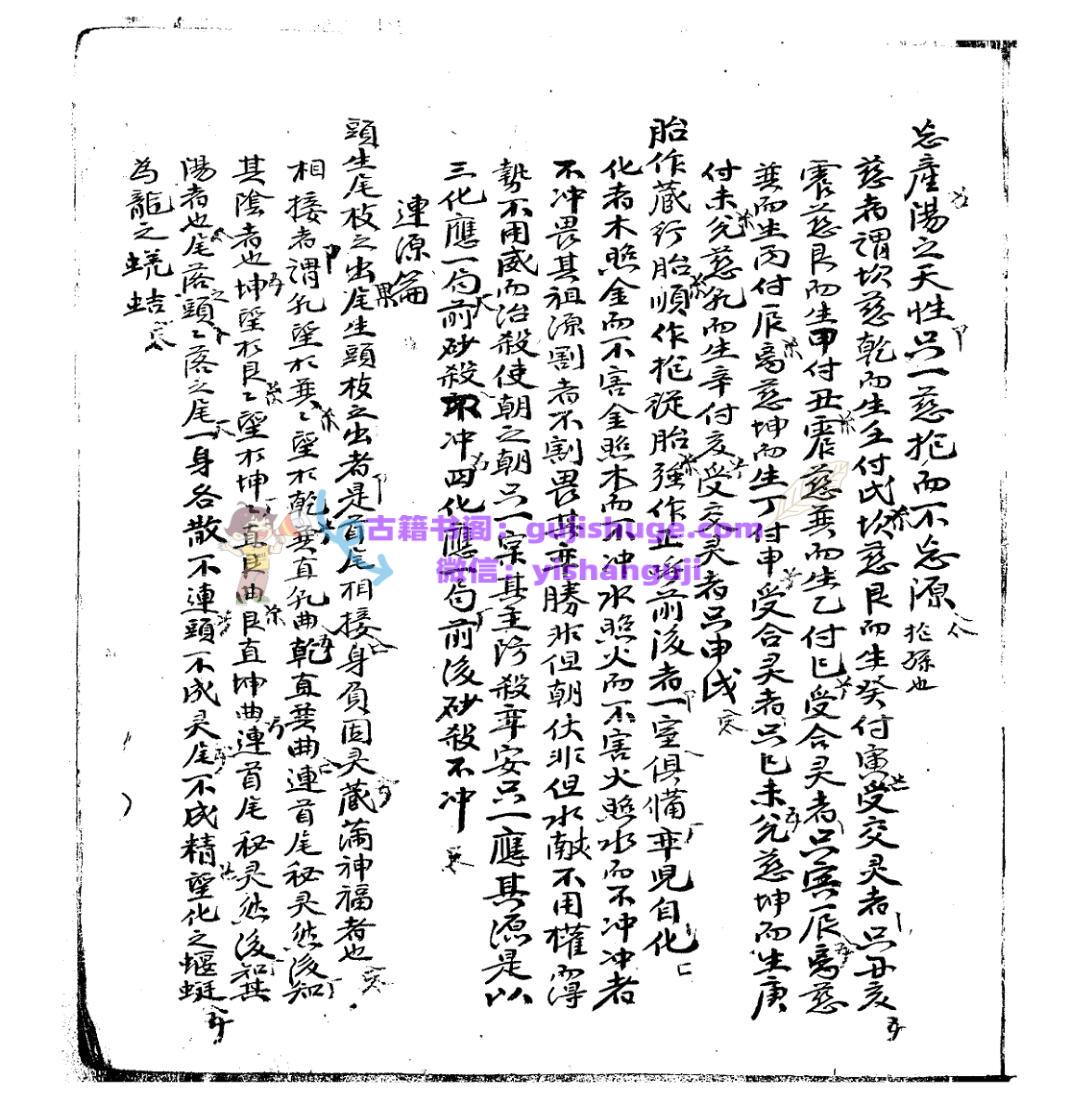 忘産陽之天性只一慈抱而不忘源
慈者謂坎慈乾而生壬付戌坎慈艮而生癸付寅受交灵者只丑亥
震慈艮而生甲付丑震慈巽而生乙付巳受合灵者只寅辰离慈
巽而生丙付辰离慈坤而生丁付申受合灵者只巳未兌慈坤而生庚
付未兌慈乹而生辛付亥受交灵者只申戌
胎作蔵行胎順作抱従胎強作前後者一室俱備卒見自化
化者木照金而不害金照木而不冲水照火而不害火照水而不冲冲者
不冲畏其祖源割者不割畏其卒勝非但朝仗非但水敵不用權而得
勢不用威而治殺使朝之朝只一宗其主防殺卒安只一應其源是以
三化應一句前砂殺不冲四化應一句前後砂殺不冲
連源論
頭生尾枝之出尾生頭枝之出者是首尾相接身負固灵蔵蒲神福者也
相接者謂乹望於巽巽望於乾巽直乹曲乾直巽曲連首尾秘灵然後知
其陰者也坤望於艮艮望於坤坤直艮曲艮直坤曲連首尾秘灵然後知其
陽者也尾落頭頭落之尾一身各散不連頭不成灵尾不成精望化之蝘蜓
為龍之蜣蛣
古籍书阁：gujishuge.com
微信：yishanguji